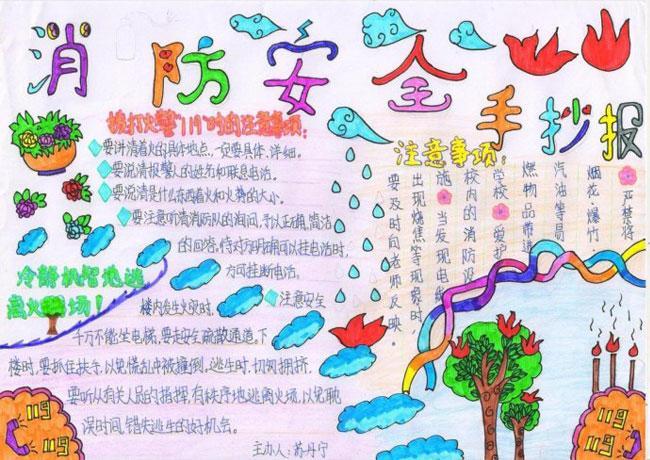 消防安全
手抄报
拨打火警"119"时的注意事项:
要讲清着火的具体地点,一定要具体、详细。
要说清报警人的姓名和联系电话。
要说清是什么东西着火和火势的大小。
要注意听清消防队的询问,予以正确、简洁
的回答,待对方明确可以挂电话时,
方可挂断电话。
冷静机智地逃
离火场!
楼内发生火灾时,
注意安全
千万不能坐电梯,要走安全疏散通道。下
楼时,要抓住扶手,以免慌乱中被撞倒。逃生时,切勿拥挤,
要听从有关人员的指挥,有秩序地逃离火场,以免耽
误时间,错失逃生的好机会。
主办人:苏丹宁
注意事项:
严禁将
烟花、爆竹
汽油等易
燃物品带进
学校 爱护
校内的消防设
施 当发现电
出现烧焦等现象时,
要及时向老师反映。
119
119
119
119